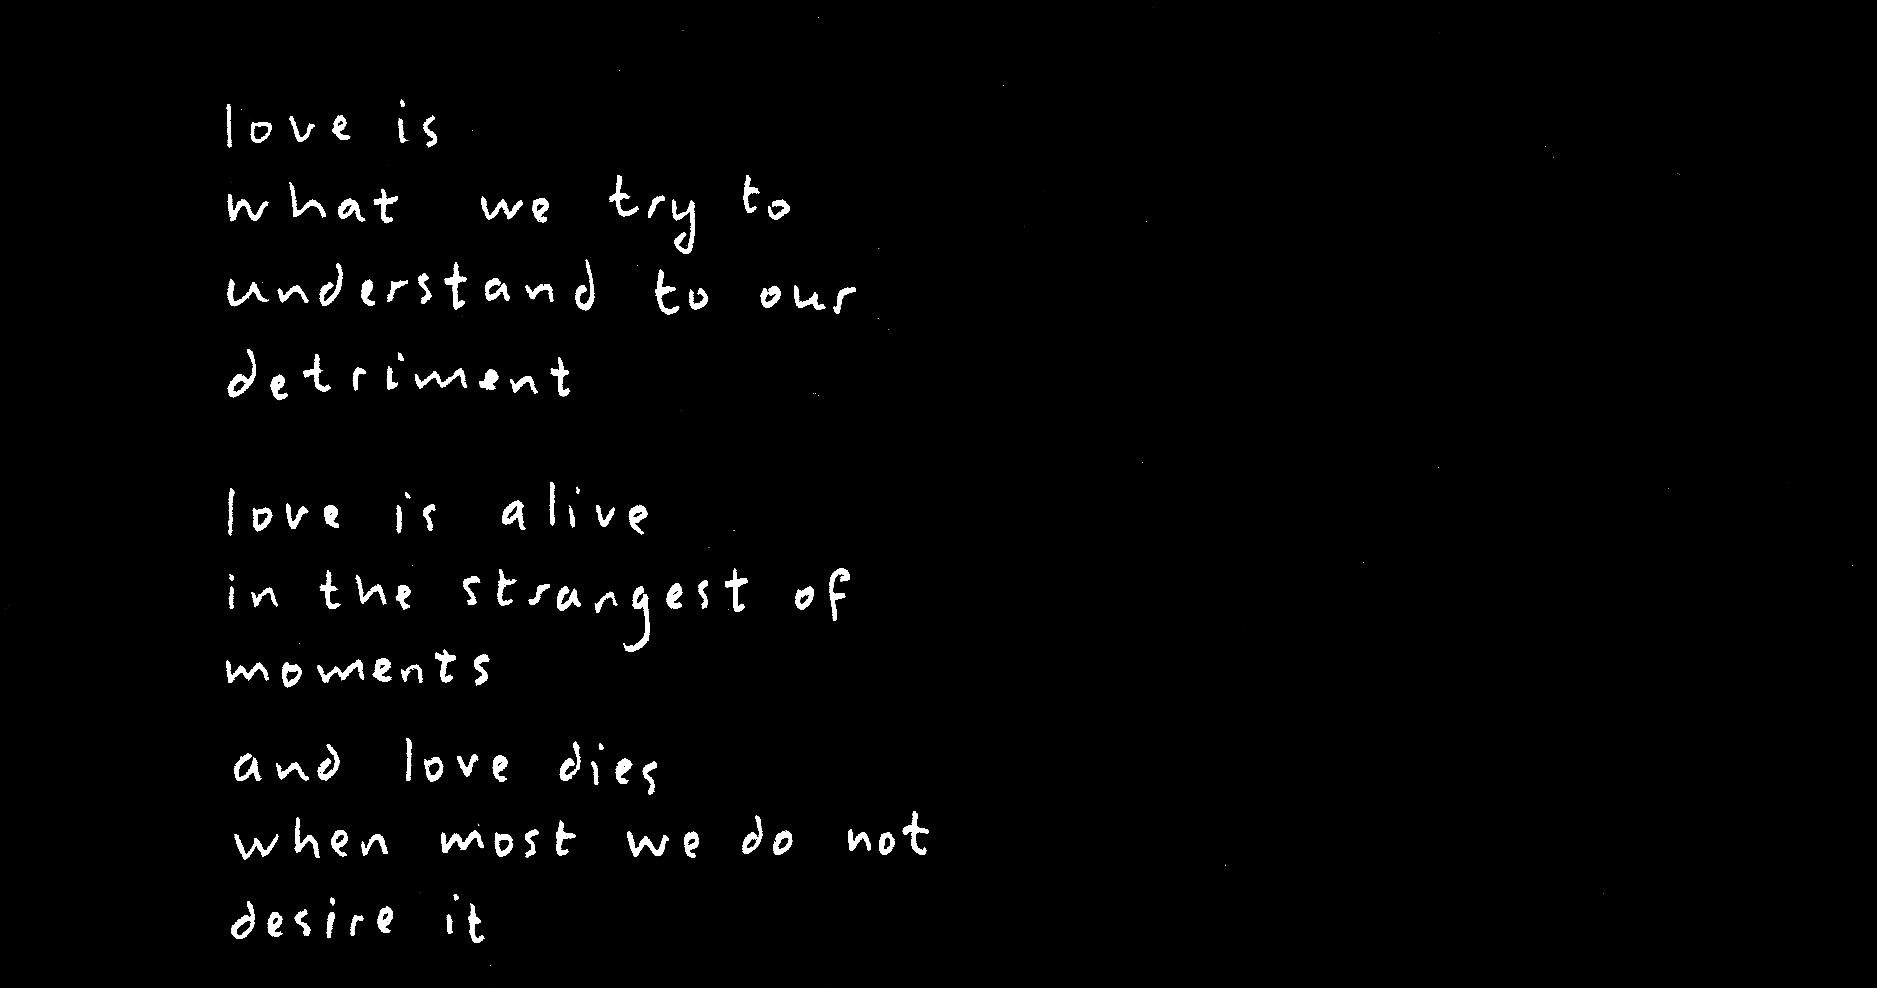 love is
what we try to
understand to our
detriment
love is alive
in the strangest of
moments
and love dies
when most we do not
desire it